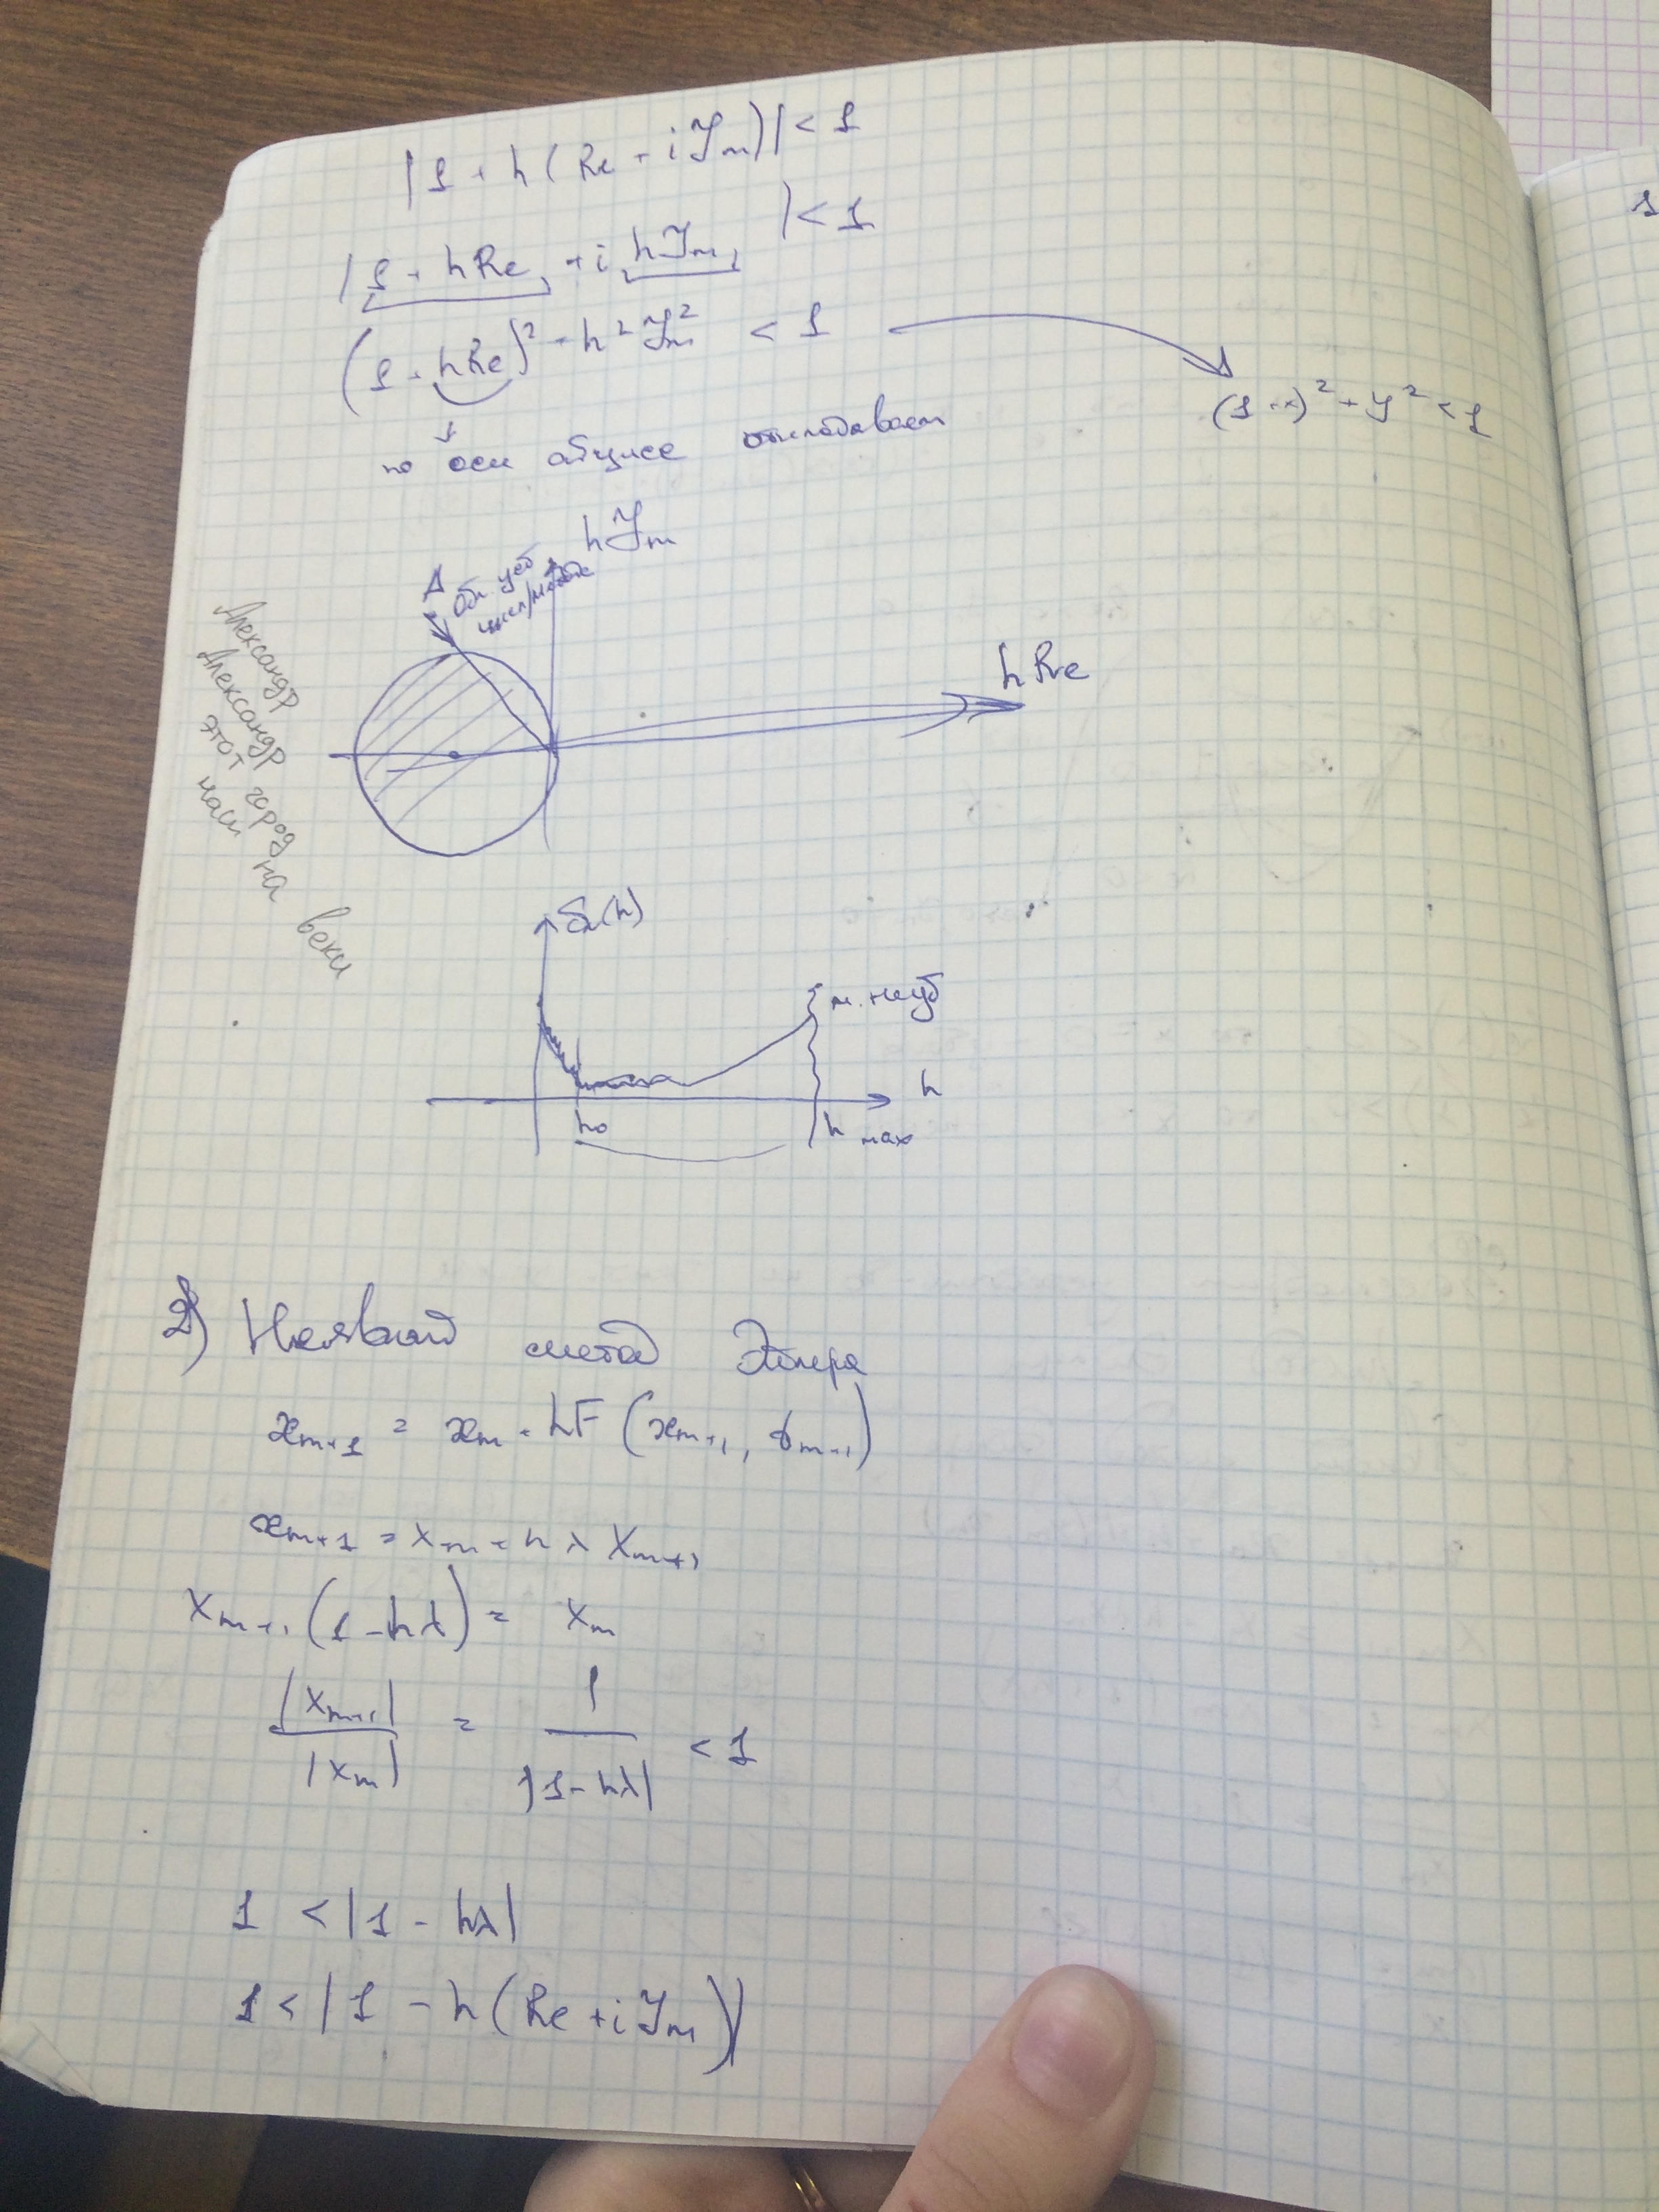 |1 + h(Re + iJm)| < 1
|1 + hRe + i hJm| < 1
(1 + hRe)² + h²Jm² < 1
(1+x)² + y² < 1
по оси абцисс откладываем
hJm
A
Обл. уст
числ/метода
hRe
Александр
Александр
этот город
наш на веки
(h)
м. неуст
h
h₀
h max
2) Неявный метод Эйлера
xm+1 = xm + hF(xm+1, tm+1)
xm+1 = xm + hλxm+1
xm+1(1 - hλ) = xm
|xm+1| / |xm| = 1 / |1 - hλ| < 1
1 < |1 - hλ|
1 < |1 - h(Re + iJm)|
1